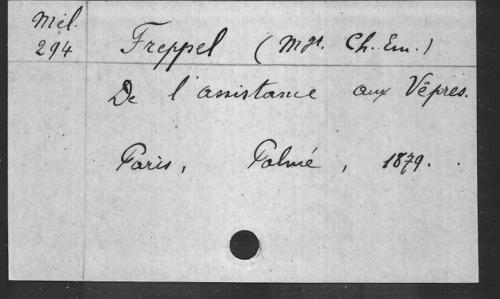 Mél.
294
Freppel (Mgr. Ch. Em.)
De l'assistance aux Vêpres.
Paris, Palmé, 1879.